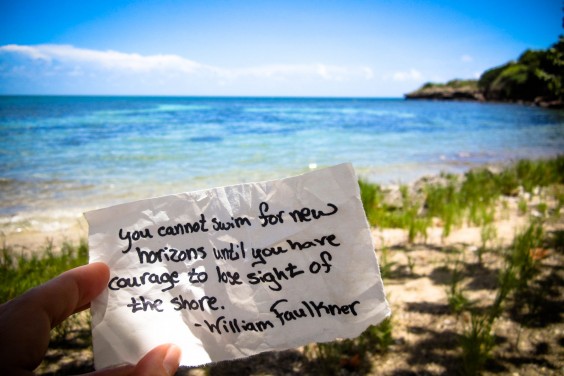 you cannot swim for new
horizons until you have
courage to lose sight of
the shore.
-William Faulkner